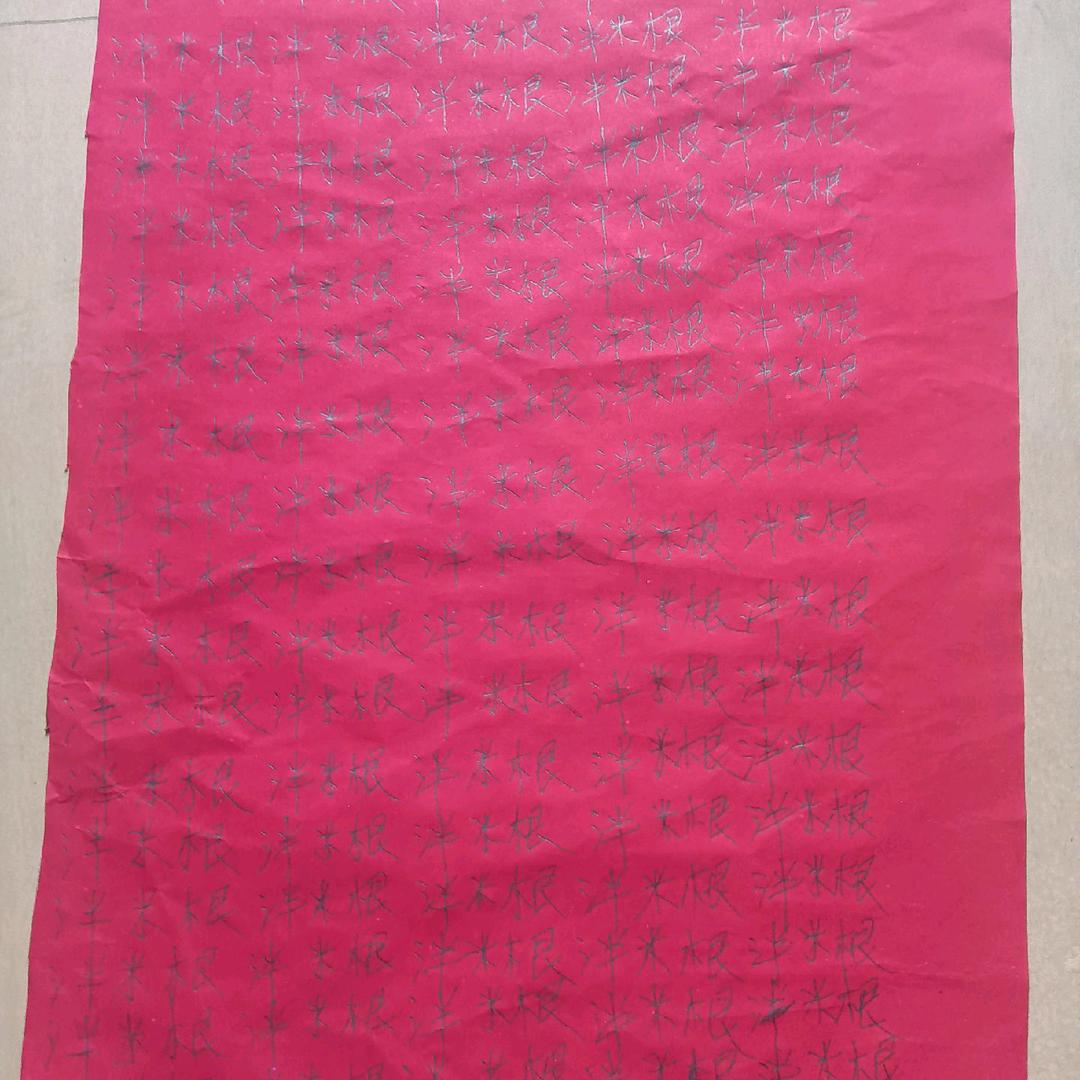 洋米根 洋米根 洋米根 洋米根 洋米根
洋米根 洋米根 洋米根 洋米根 洋米根
洋米根 洋米根 洋米根 洋米根 洋米根
洋米根 洋米根 洋米根 洋米根 洋米根
洋米根 洋米根 洋米根 洋米根 洋米根
洋米根 洋米根 洋米根 洋米根 洋米根
洋米根 洋米根 洋米根 洋米根 洋米根
洋米根 洋米根 洋米根 洋米根 洋米根
洋米根 洋米根 洋米根 洋米根 洋米根
洋米根 洋米根 洋米根 洋米根 洋米根
洋米根 洋米根 洋米根 洋米根 洋米根
洋米根 洋米根 洋米根 洋米根 洋米根
洋米根 洋米根 洋米根 洋米根 洋米根
洋米根 洋米根 洋米根 洋米根 洋米根
洋米根 洋米根 洋米根 洋米根 洋米根
洋米根 洋米根 洋米根 洋米根 洋米根
洋米根 洋米根 洋米根